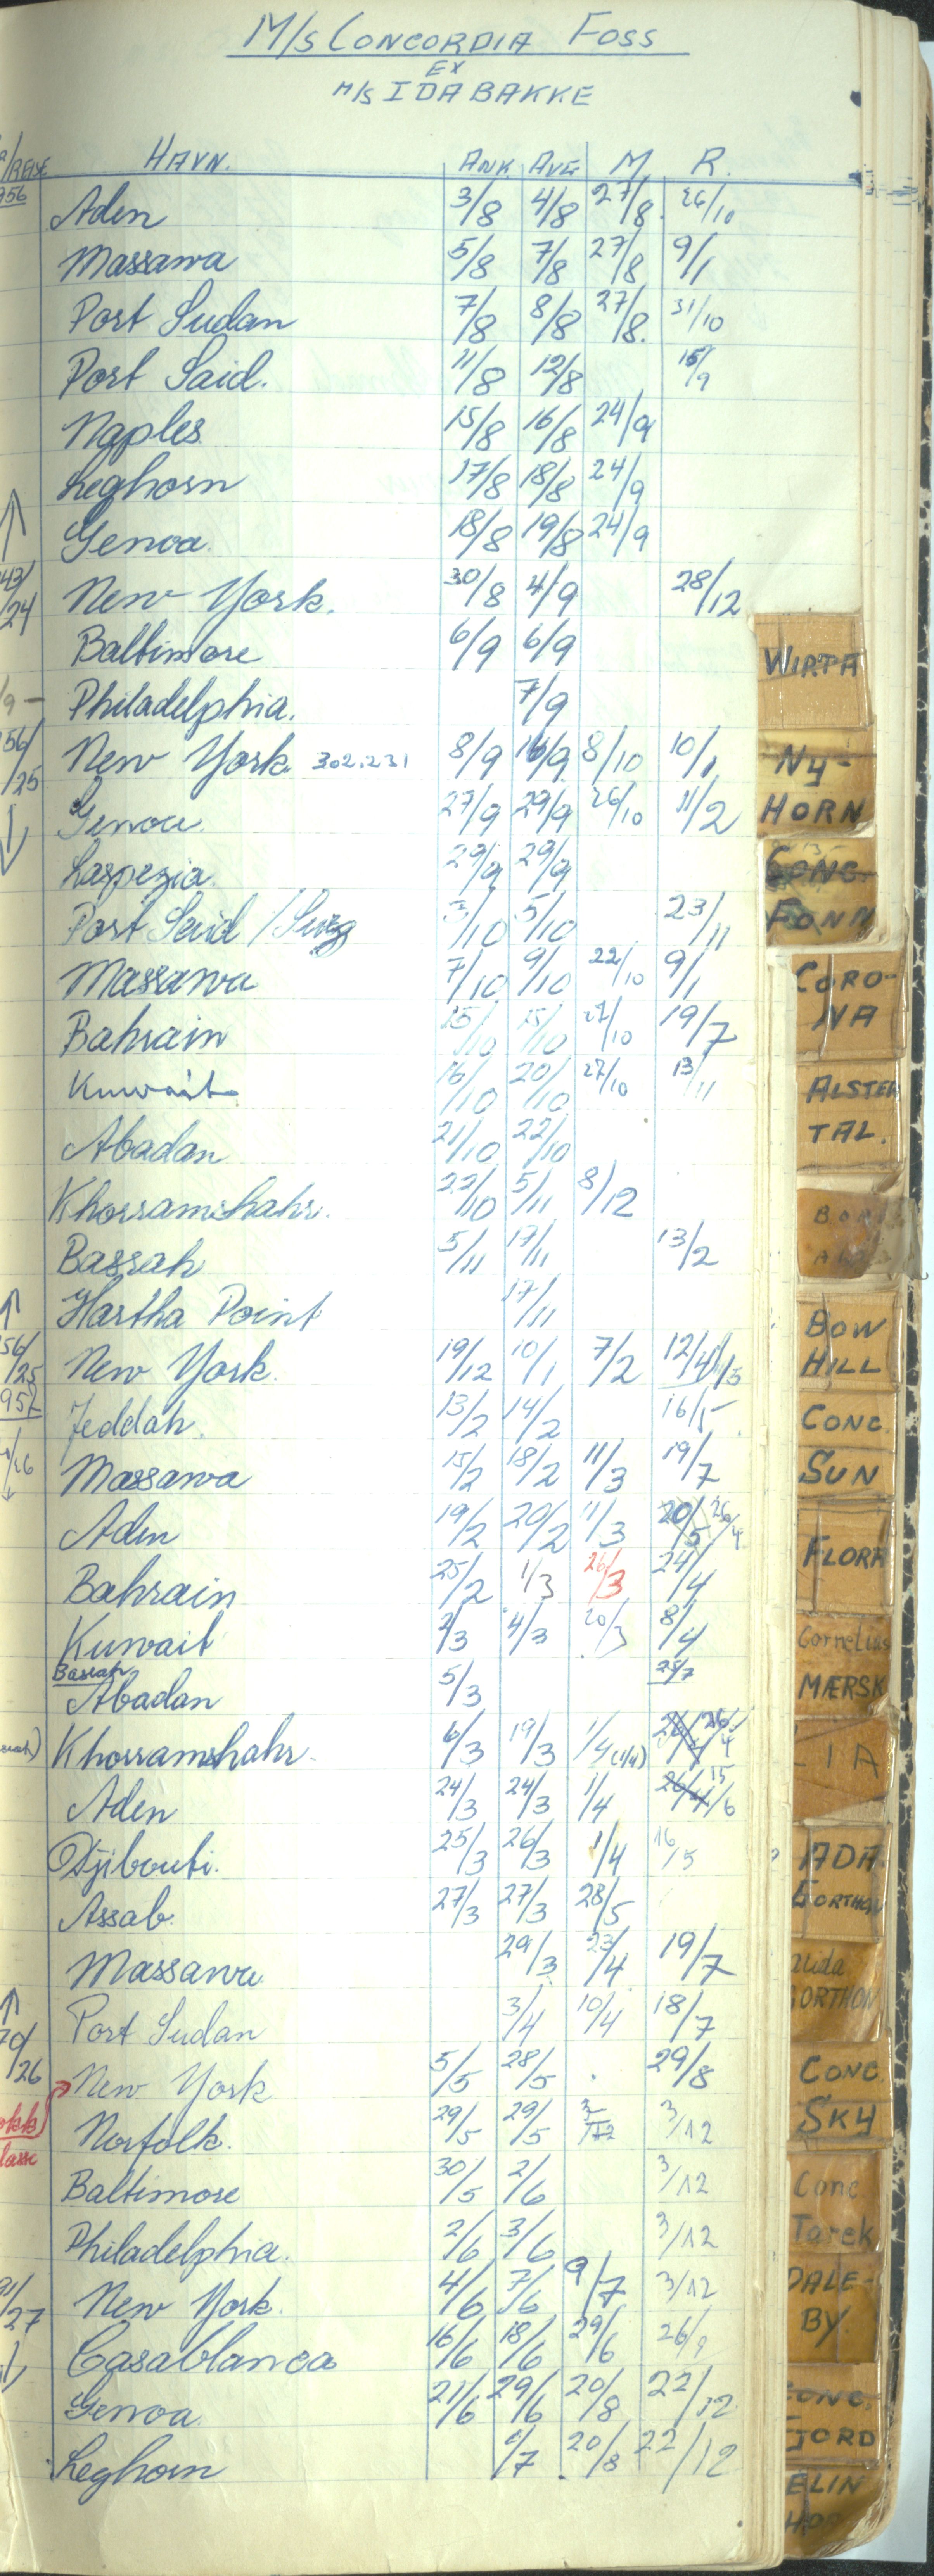 M/S CONCORDIA FOSS
EX
M/S IDA BAKKE
/REISE HAVN. ANK AVG M. R.
956 Aden 3/8 4/8 27/8 26/10
Massawa 5/8 7/8 27/8 9/1
Port Sudan 7/8 8/8 27/8 31/10
Port Said. 11/8 12/8 15/9
Naples 15/8 16/8 24/9
Leghorn 17/8 18/8 24/9
Genoa. 18/8 19/8 24/9
43/24 New York. 30/8 4/9 28/12
Baltimore 6/9 6/9
/9 - Philadelphia. 7/9
56/25 New York 302.231 8/9 16/9 8/10 10/1
Genoa. 27/9 29/9 26/10 11/2
Laspezia. 29/9 29/9
Port Said / Suez 3/10 5/10 23/11
Massawa 7/10 9/10 22/10 9/1
Bahrain 15/10 15/10 27/10 19/7
Kuwait 16/10 20/10 27/10 13/11
Abadan 21/10 22/10
Khorramshahr. 22/10 5/11 8/12
Basrah 5/11 17/11 13/2
Hartha Point 17/11
56/25 New York. 19/12 10/1 7/2 12/4
957 Jeddah. 13/2 14/2 16/5
/26 Massawa 15/2 18/2 11/3 19/7
Aden 19/2 20/2 11/3 20/5 26/4
Bahrain 25/2 1/3 26/3 24/4
Kuwait 2/3 4/3 20/3 8/4
Basrah
Abadan 5/3 25/7
Khorramshahr. 6/3 19/3 1/4 (1/4) 26/4
Aden 24/3 24/3 1/4 26/4 15/6
Djibouti. 25/3 26/3 1/4 16/5
Assab. 27/3 27/3 28/5
Massawa 29/3 23/4 19/7
Port Sudan 3/4 10/4 18/7
70/26 New York 5/5 28/5 29/8
Norfolk. 29/5 29/5 3/12
Baltimore 30/5 2/6 3/12
Philadelphia. 2/6 3/6 3/12
/27 New York. 4/6 7/6 9/7 3/12
Casablanca 16/6 18/6 29/6 26/9
Genoa. 21/6 29/6 20/8 22/12
Leghorn 1/7 20/8 22/12
WIRTA
NY-
HORN
CONC.
FONN
CORO-
NA
ALSTER
TAL.
BOW
HILL
CONC.
SUN
FLORA
Cornelius
MÆRSK
ADA
GORTHON
GORTHON
CONC
SKY
Conc
Tarek
DALE-
BY.
CONC.
FJORD
ELIN